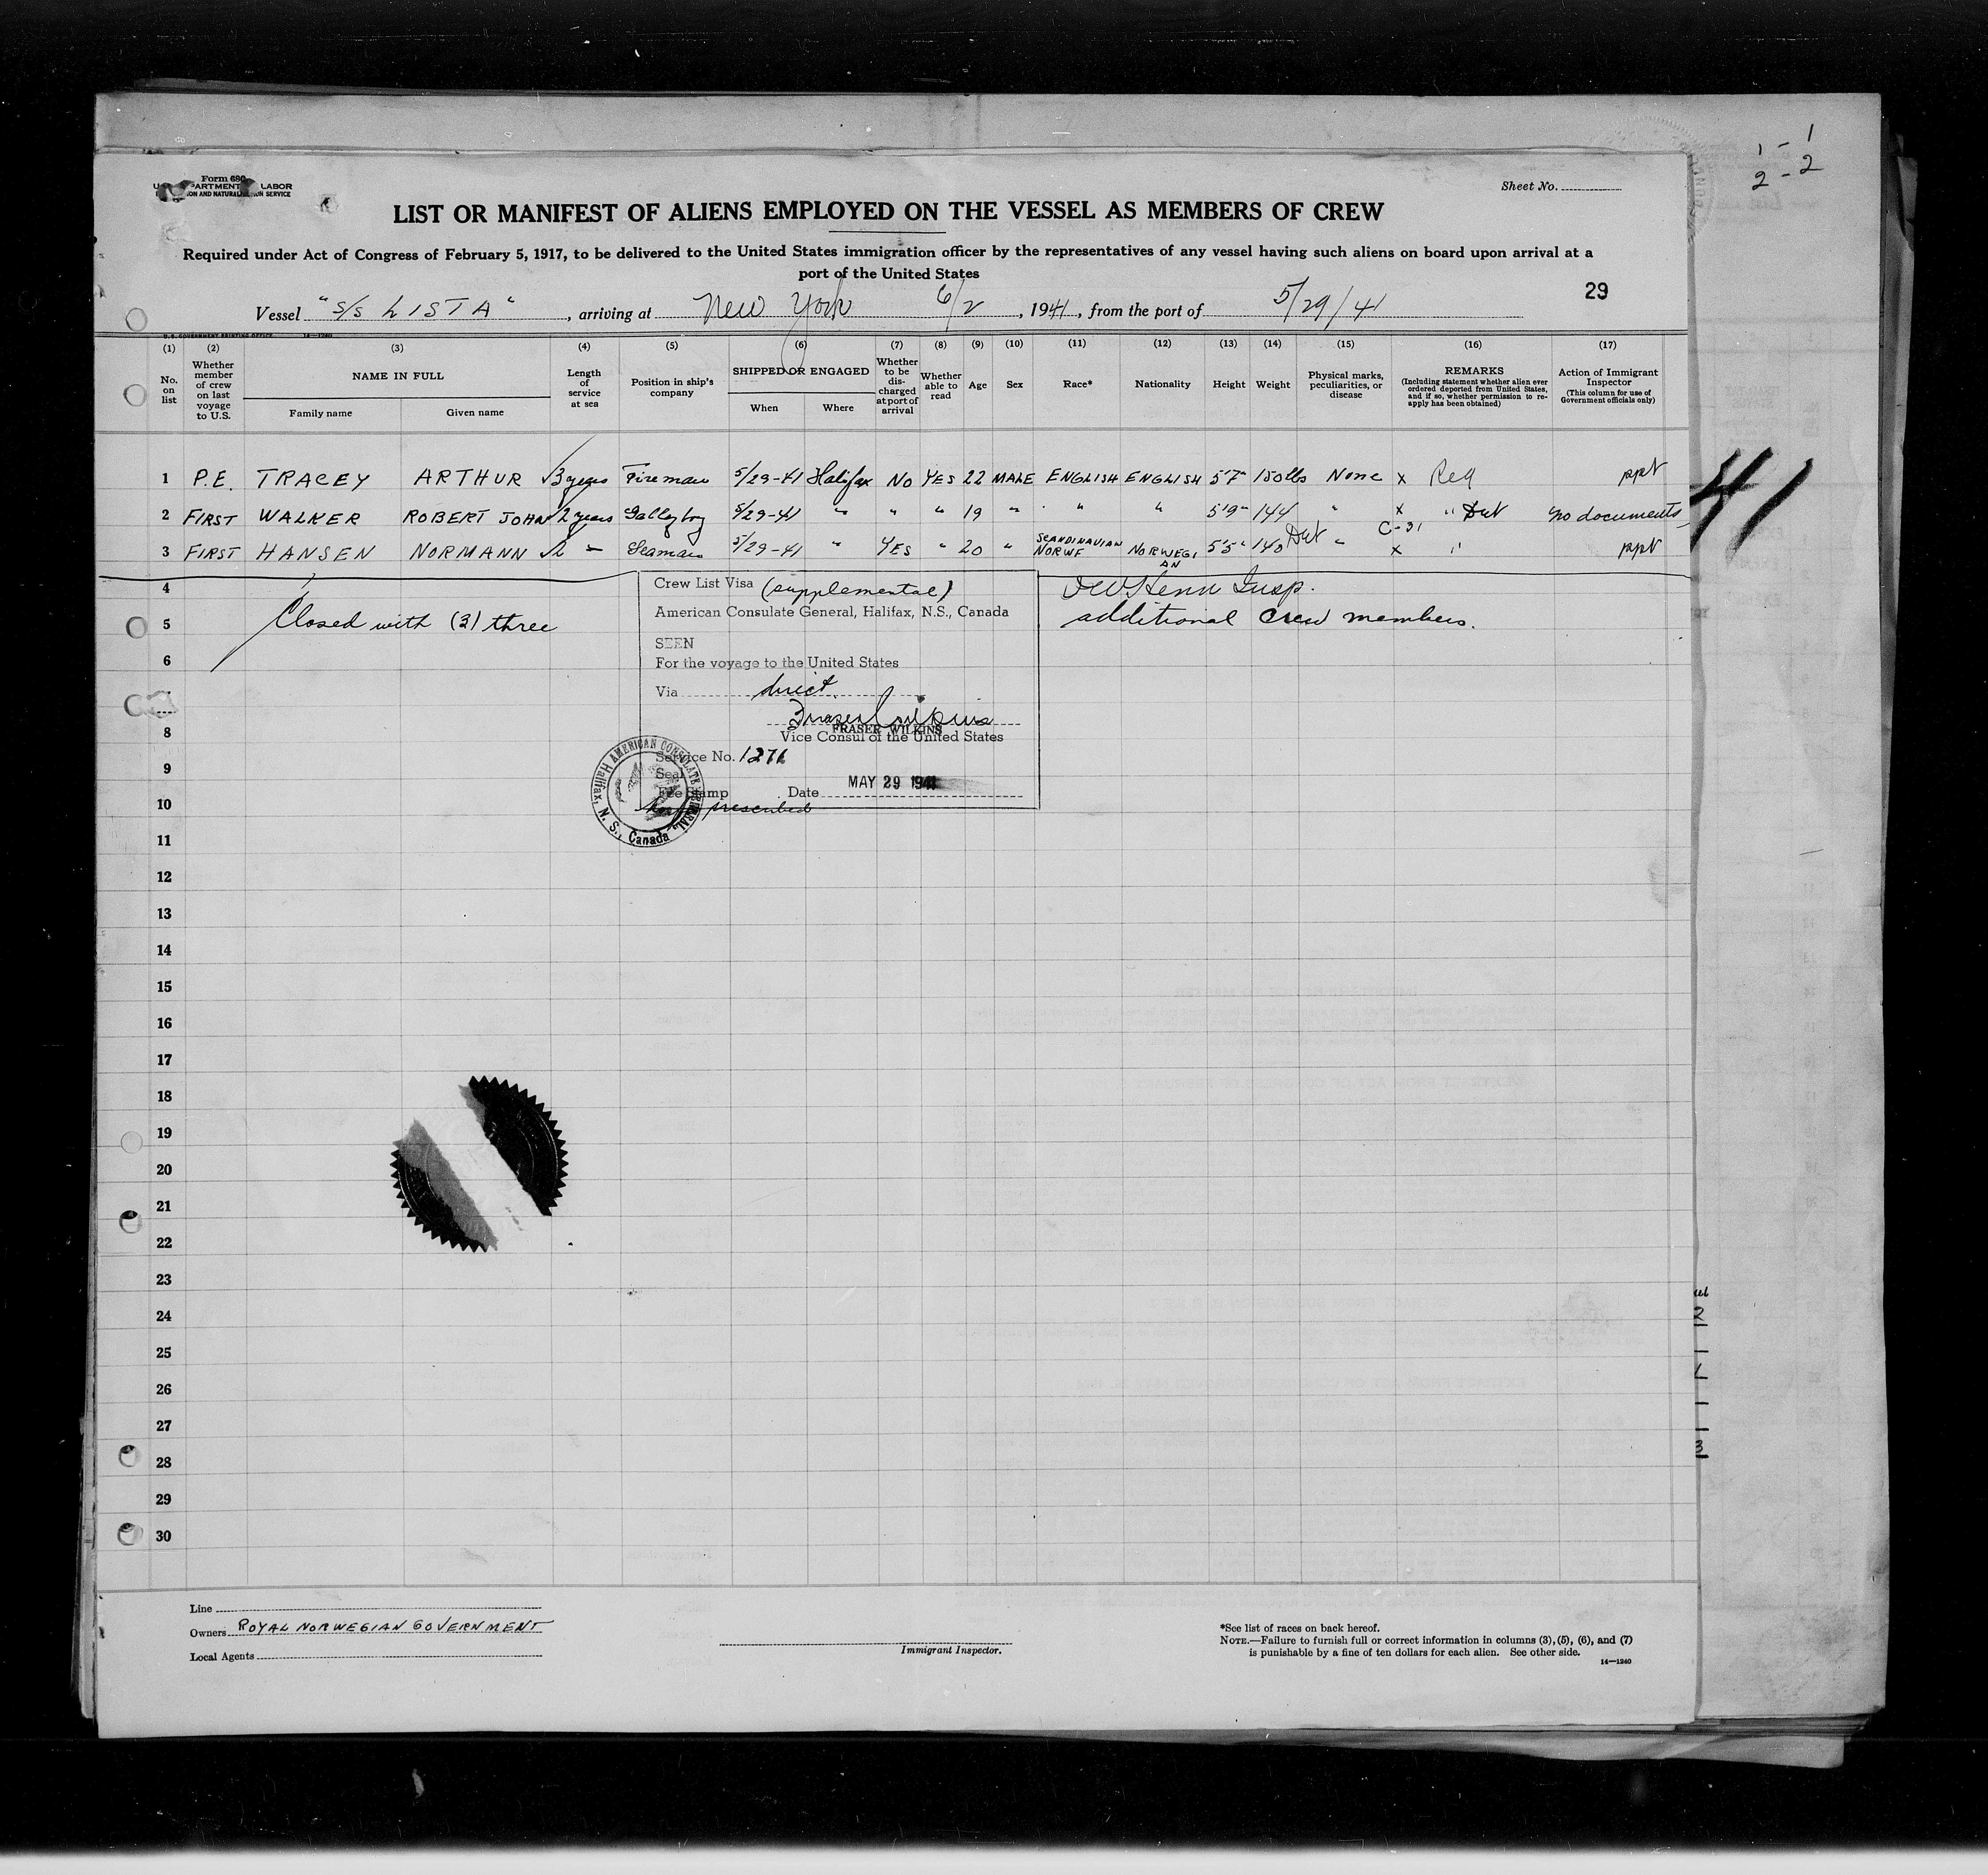 Form 680
LABOR
Sheet No.
1 - 1
2 - 2
LIST OR MANIFEST OF ALIENS EMPLOYED ON THE VESSEL AS MEMBERS OF CREW
Required under Act of Congress of February 5, 1917, to be delivered to the United States immigration officer by the representatives of any vessel having such aliens on board upon arrival at a
port of the United States
29
Vessel "S/S LISTA", arriving at New York 6/2, 1941, from the port of 5/29/41
U.S. GOVERNMENT PRINTING OFFICE 14—1240
(1) (2) (3) (4) (5) (6) (7) (8) (9) (10) (11) (12) (13) (14) (15) (16) (17)
No. on list
Whether member of crew on last voyage to U.S.
NAME IN FULL
Family name
Given name
Length of service at sea
Position in ship's company
SHIPPED OR ENGAGED
When
Where
Whether to be discharged at port of arrival
Whether able to read
Age
Sex
Race*
Nationality
Height
Weight
Physical marks, peculiarities, or disease
REMARKS
(Including statement whether alien ever ordered deported from United States, and if so, whether permission to reapply has been obtained)
Action of Immigrant Inspector
(This column for use of Government officials only)
1 P.E. TRACEY ARTHUR √3 years Fireman 5/29-41 Halifax NO YES 22 MALE ENGLISH ENGLISH 5'7" 150lbs None x Reg ppt
2 FIRST WALKER ROBERT JOHN √2 years Galleyboy 5/29-41 " " " 19 " " " 5'9" 144 " x " no documents
3 FIRST HANSEN NORMANN √2 " Seaman 5/29-41 " YES " 20 " SCANDINAVIAN NORWEGIAN 5'5" 140 " C-31 x " ppt
41
4
5
6
8
9
10
11
12
13
14
15
16
17
18
19
20
21
22
23
24
25
26
27
28
29
30
Closed with (3) three
Insp.
additional Crew members.
Crew List Visa (supplemental)
American Consulate General, Halifax, N.S., Canada
SEEN
For the voyage to the United States
Via direct.
Fraser Wilkins
FRASER WILKINS
Vice Consul of the United States
Service No. 1271
Seal
Fee Stamp Date MAY 29 1941
prescribed
AMERICAN CONSULATE GENERAL
Halifax, N. S., Canada
Line
Owners ROYAL NORWEGIAN GOVERNMENT
Local Agents
Immigrant Inspector.
*See list of races on back hereof.
NOTE.—Failure to furnish full or correct information in columns (3), (5), (6), and (7)
is punishable by a fine of ten dollars for each alien. See other side.
14—1240